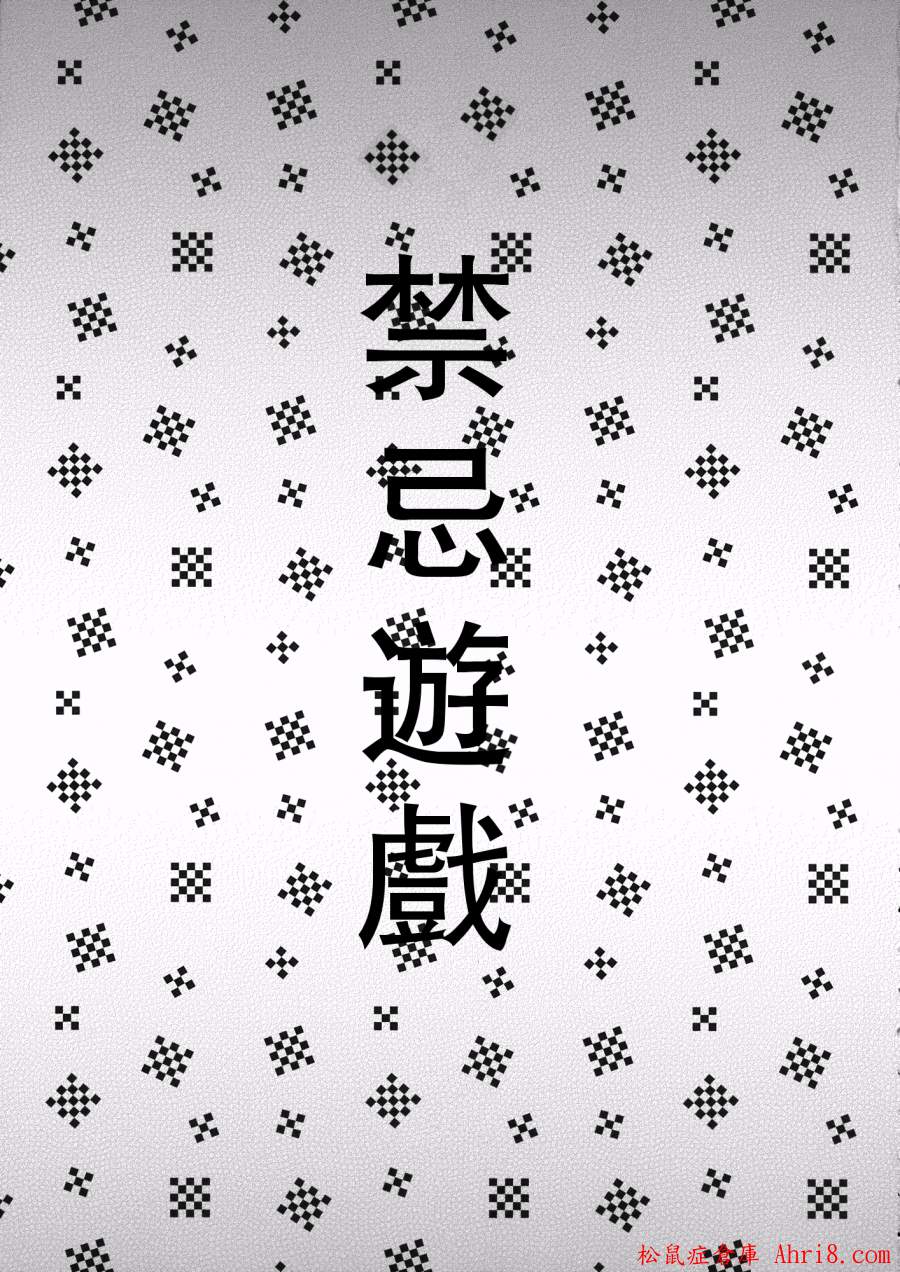 禁忌遊戲
松鼠症倉庫 Ahri8.com